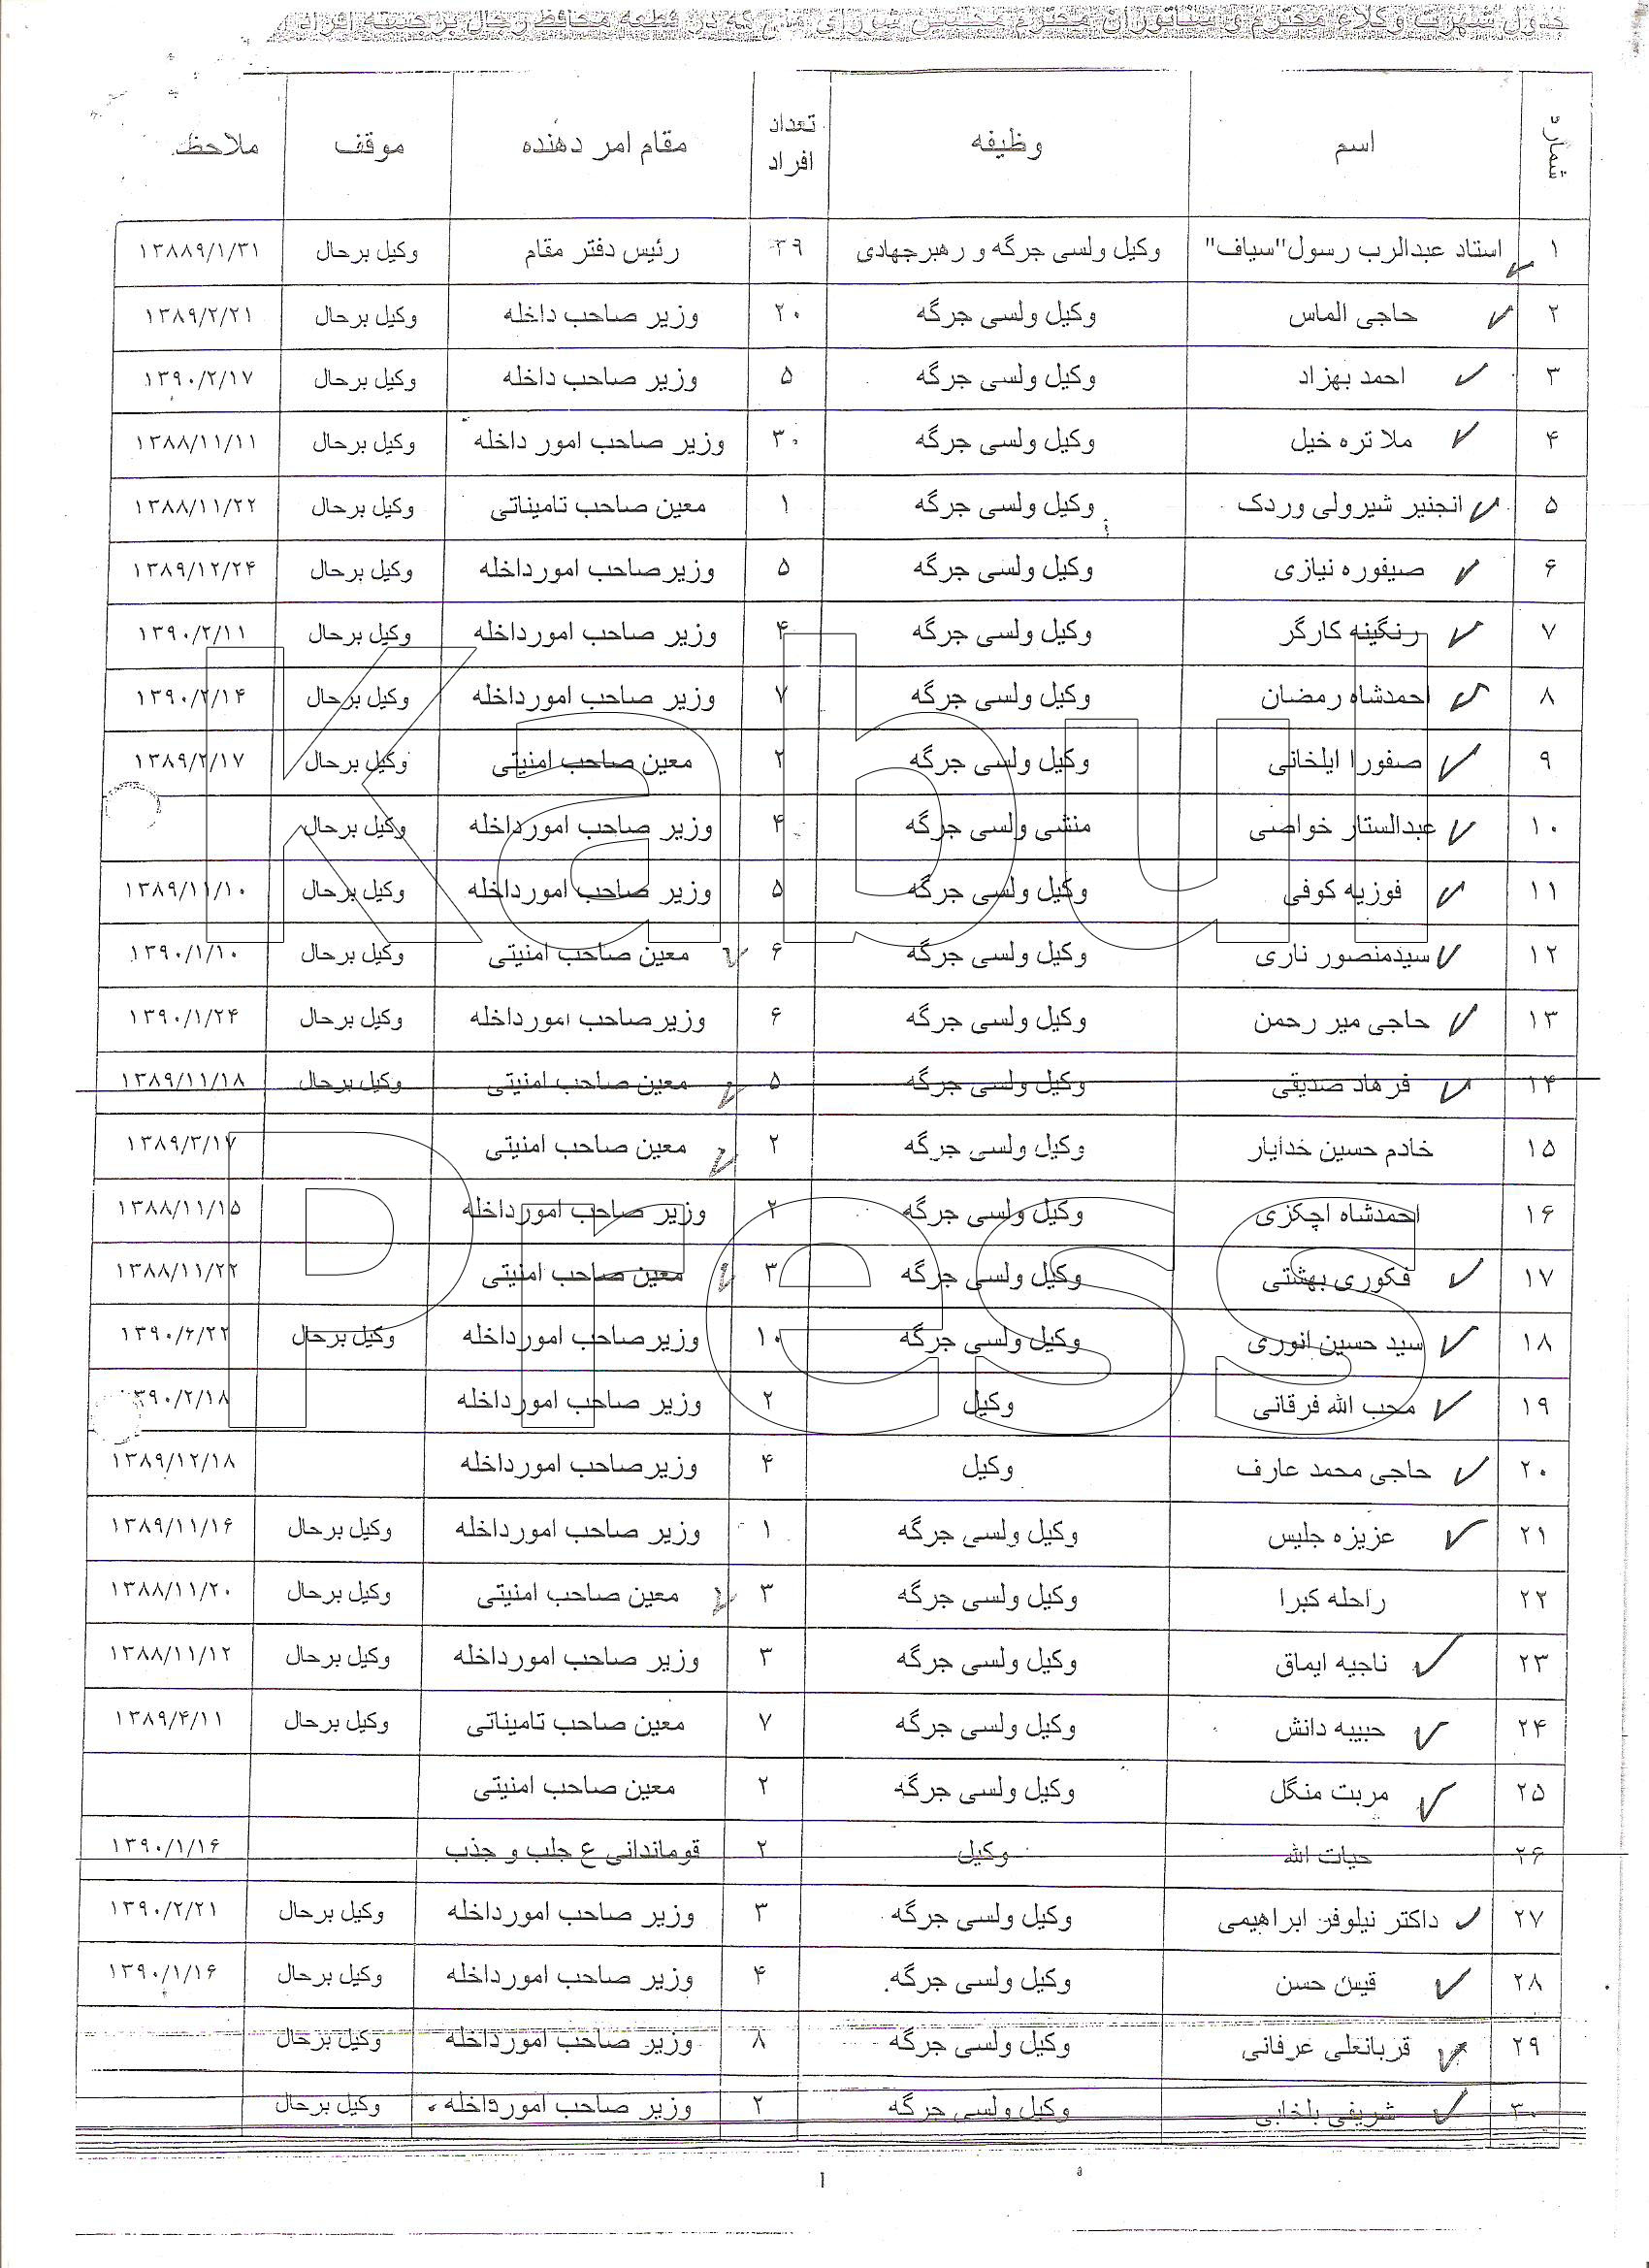 جدول شهرت وکلاء محترم و سناتوران محترم مجلس شورای ملی که در قطعه محافظ رجال برجسته افراد
شماره اسم وظیفه تعداد افراد مقام امر دهنده موقف ملاحظ
۱ استاد عبدالرب رسول"سیاف" وکیل ولسی جرگه و رهبرجهادی ۳۹ رئیس دفتر مقام وکیل برحال ۱۳۸۸۹/۱/۳۱
۲ حاجی الماس وکیل ولسی جرگه ۲۰ وزیر صاحب داخله وکیل برحال ۱۳۸۹/۲/۲۱
۳ احمد بهزاد وکیل ولسی جرگه ۵ وزیر صاحب داخله وکیل برحال ۱۳۹۰/۲/۱۷
۴ ملا تره خیل وکیل ولسی جرگه ۳۰ وزیر صاحب امور داخله وکیل برحال ۱۳۸۸/۱۱/۱۱
۵ انجنیر شیرولی وردک وکیل ولسی جرگه ۱ معین صاحب تامیناتی وکیل برحال ۱۳۸۸/۱۱/۲۲
۶ صیفوره نیازی وکیل ولسی جرگه ۵ وزیرصاحب امورداخله وکیل برحال ۱۳۸۹/۱۲/۲۴
۷ رنگینه کارگر وکیل ولسی جرگه ۴ وزیر صاحب امورداخله وکیل برحال ۱۳۹۰/۲/۱۱
۸ احمدشاه رمضان وکیل ولسی جرگه ۷ وزیر صاحب امورداخله وکیل برحال ۱۳۹۰/۲/۱۴
۹ صفورا ایلخانی وکیل ولسی جرگه ۲ معین صاحب امنیتی وکیل برحال ۱۳۸۹/۲/۱۷
۱۰ عبدالستار خواصی منشی ولسی جرگه ۴ وزیر صاحب امورداخله وکیل برحال
۱۱ فوزیه کوفی وکیل ولسی جرگه ۵ وزیر صاحب امورداخله وکیل برحال ۱۳۸۹/۱۱/۱۰
۱۲ سیدمنصور ناری وکیل ولسی جرگه ۶ معین صاحب امنیتی وکیل برحال ۱۳۹۰/۱/۱۰
۱۳ حاجی میر رحمن وکیل ولسی جرگه ۶ وزیرصاحب امورداخله وکیل برحال ۱۳۹۰/۱/۲۴
۱۴ فرهاد صدیقی وکیل ولسی جرگه ۵ معین صاحب امنیتی وکیل برحال ۱۳۸۹/۱۱/۱۸
۱۵ خادم حسین خدایار وکیل ولسی جرگه ۲ معین صاحب امنیتی ۱۳۸۹/۳/۱۷
۱۶ احمدشاه اچکزی وکیل ولسی جرگه ۲ وزیر صاحب امورداخله ۱۳۸۸/۱۱/۱۵
۱۷ فکوری بهشتی وکیل ولسی جرگه ۳ معین صاحب امنیتی ۱۳۸۸/۱۱/۲۲
۱۸ سید حسین انوری وکیل ولسی جرگه ۱۰ وزیرصاحب امورداخله وکیل برحال ۱۳۹۰/۶/۲۲
۱۹ محب الله فرقانی وکیل ۲ وزیر صاحب امورداخله ۱۳۹۰/۲/۱۸
۲۰ حاجی محمد عارف وکیل ۴ وزیرصاحب امورداخله ۱۳۸۹/۱۲/۱۸
۲۱ عزیزه جلیس وکیل ولسی جرگه ۱ وزیر صاحب امورداخله وکیل برحال ۱۳۸۹/۱۱/۱۶
۲۲ راحله کبرا وکیل ولسی جرگه ۳ معین صاحب امنیتی وکیل برحال ۱۳۸۸/۱۱/۲۰
۲۳ ناجیه ایماق وکیل ولسی جرگه ۳ وزیر صاحب امورداخله وکیل برحال ۱۳۸۸/۱۱/۱۲
۲۴ حبیبه دانش وکیل ولسی جرگه ۷ معین صاحب تامیناتی وکیل برحال ۱۳۸۹/۴/۱۱
۲۵ مربت منگل وکیل ولسی جرگه ۲ معین صاحب امنیتی
۲۶ حیات الله وکیل ۲ قوماندانی ع جلب و جذب ۱۳۹۰/۱/۱۶
۲۷ داکتر نیلوفر ابراهیمی وکیل ولسی جرگه ۳ وزیر صاحب امورداخله وکیل برحال ۱۳۹۰/۲/۲۱
۲۸ قیس حسن وکیل ولسی جرگه ۴ وزیر صاحب امورداخله وکیل برحال ۱۳۹۰/۱/۱۶
۲۹ قربانعلی عرفانی وکیل ولسی جرگه ۸ وزیر صاحب امورداخله وکیل برحال
۳۰ شریفی بلخابی وکیل ولسی جرگه ۲ وزیر صاحب امورداخله وکیل برحال
۱
Kabul
Press